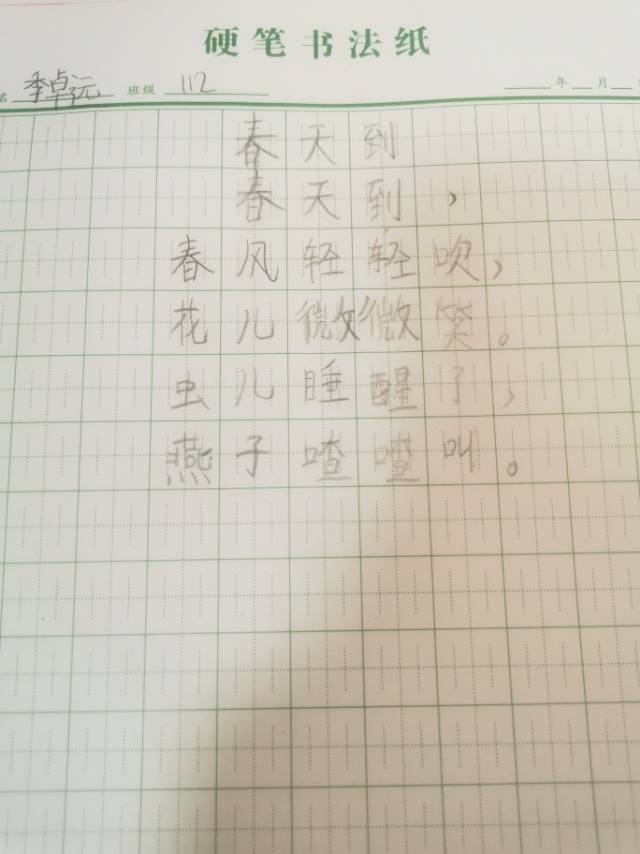 硬笔书法纸
名 李卓沅 班级 112 年 月
春天到
春天到，
春风轻轻吹，
花儿微微笑。
虫儿睡醒了，
燕子喳喳叫。